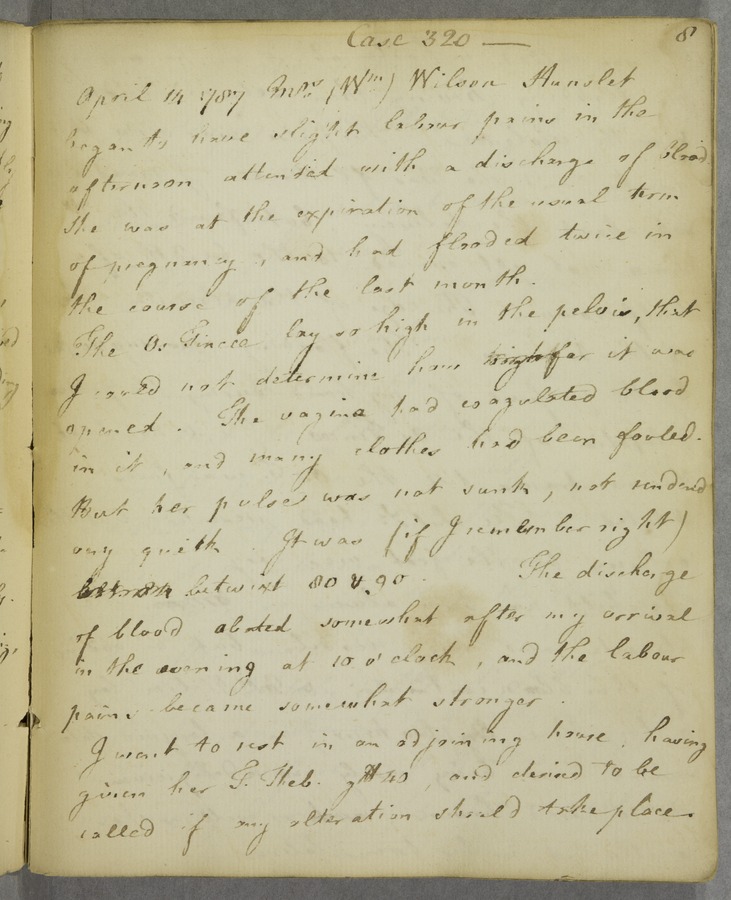 Case 320 — 8
April 14 1787 Mrs (Wm) Wilson Hunslet
began to have slight labour pains in the
afternoon attended with a discharge of blood
She was at the expiration of the usual term
of pregnancy, and had flooded twice in
the course of the last month.
The Os Tincae lay so high in the pelvis, that
I could not determine how far it was
opened. The vagina had coagulated blood
in it, and many clothes had been fouled.
But her pulse was not sunk, not rendered
very quick. It was (if I remember right)
betwixt 80 & 90. The discharge
of blood abated somewhat after my arrival
in the evening at 10 o'clock, and the labour
pains became somewhat stronger.
I went to rest in an adjoining house, having
given her T. Theb. gtt 40, and desired to be
called if any alteration should take place.